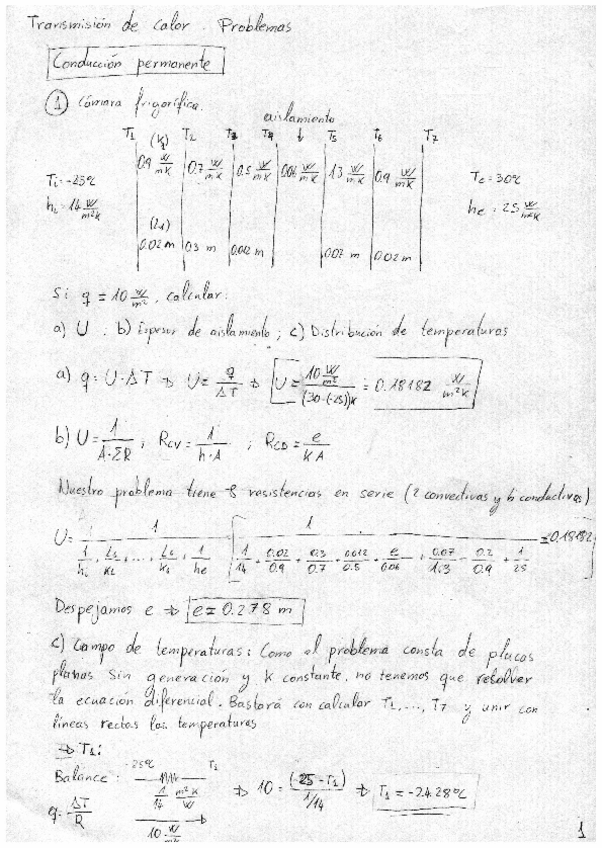 Transmisión de calor. Problemas
Conducción permanente
① Cámara frigorífica.
aislamiento ↓
T₁ (k₁) T₂ T₃ T₄ T₅ T₆ T₇
0.9 W/mK 0.7 W/mK 0.5 W/mK 0.06 W/mK 1.3 W/mK 0.9 W/mK
Ti = -25ºC Te = 30ºC
hi = 14 W/m²K he = 25 W/m²K
(L1)
0.02 m 0.3 m 0.012 m 0.07 m 0.02 m
Si q = 10 W/m², calcular:
a) U ; b) Espesor de aislamiento ; c) Distribución de temperaturas
a) q = U·ΔT → U = q/ΔT → U = 10 W/m² / (30-(-25))K = 0.18182 W/m²K
b) U = 1/(A·ΣR) ; Rcv = 1/(h·A) ; RCD = e/(KA)
Nuestro problema tiene 8 resistencias en serie (2 convectivas y 6 conductivas)
Despejamos e → e = 0.278 m
c) Campo de temperaturas: Como el problema consta de placas
planas sin generación y k constante, no tenemos que resolver
la ecuación diferencial. Bastará con calcular T₁,..., T₇ y unir con
líneas rectas las temperaturas
⇒ T₁:
Balance: -25ºC T₁
q = ΔT/R 1/14 m²K/W → 10 = (-25-T₁)/(1/14) → T₁ = -24.28ºC
10 W/m²
1